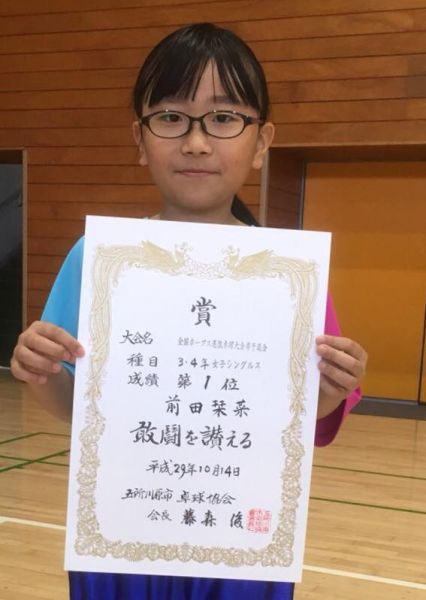 賞
大会名 全国ホープス選抜卓球大会県予選会
種目 3・4年女子シングルス
成績 第1位
前田栞菜
敢闘を讃える
平成29年10月14日
五所川原市卓球協会
会長 藤森俊